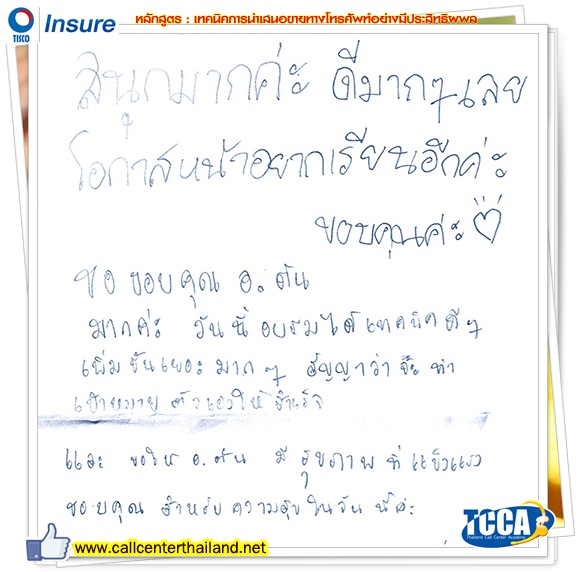 TISCO Insure
หลักสูตร : เทคนิคการนำเสนอขายทางโทรศัพท์อย่างมีประสิทธิพผล
สนุกมากค่ะ ดีมากๆเลย
โอกาสหน้าอยากเรียนอีกค่ะ
ขอบคุณค่ะ
ขอ ขอบ คุณ อ. ตัน
มากค่ะ วันนี้ อบรมได้เทคนิคดีๆ
เพิ่มขึ้นเยอะ มาก ๆ สัญญาว่า จะ ทำ
เป้าหมาย ตัวเองให้ สำเร็จ
และ ขอให้ อ. ตัน มี สุขภาพ ที่ แข็งแรง
ขอบคุณ สำหรับ ความสุข ในวัน นี้ค่ะ
www.callcenterthailand.net
TCCA
Thailand Call Center Academy